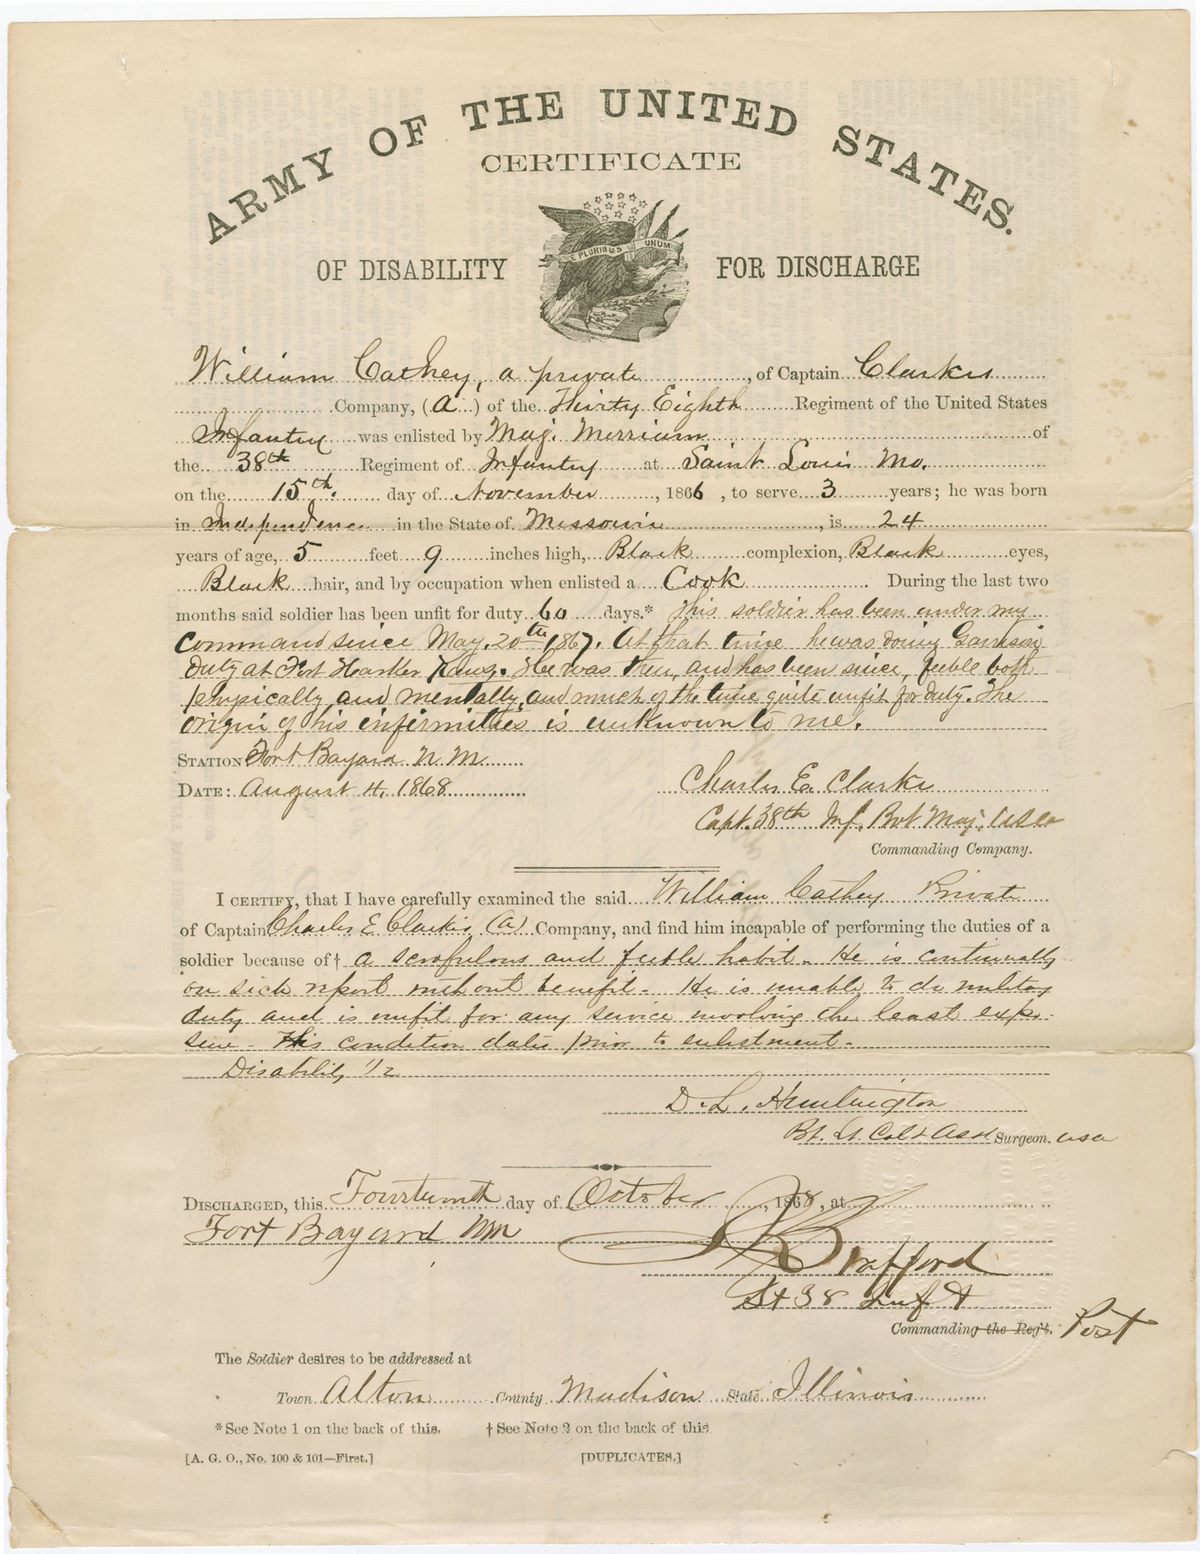 ARMY OF THE UNITED STATES.
CERTIFICATE
E PLURIBUS UNUM
OF DISABILITY FOR DISCHARGE
William Cathey, a private, of Captain Clarke's
Company, (A) of the Thirty Eighth Regiment of the United States
Infantry was enlisted by Maj. Merriam of
the 38th Regiment of Infantry at Saint Louis Mo.
on the 15th. day of November, 1866, to serve 3 years; he was born
in Independence in the State of Missouri, is 24
years of age, 5 feet 9 inches high, Black complexion, Black eyes,
Black hair, and by occupation when enlisted a Cook. During the last two
months said soldier has been unfit for duty 60 days.* This soldier has been under my
command since May. 20th 1867. At that time he was doing Garrison
duty at Fort Harker Kans. He was then, and has been since, feeble both
physically and mentally, and much of the time quite unfit for duty. The
origin of his infirmities is unknown to me.
STATION: Fort Bayard N. M.
DATE: August 4, 1868
Charles E. Clarke
Capt. 38th Inf. Bvt Maj. USA
Commanding Company.
I CERTIFY, that I have carefully examined the said William Cathey Private
of Captain Charles E Clarke's (A) Company, and find him incapable of performing the duties of a
soldier because of† a scrofulous and feeble habit. He is continually
on sick report without benefit. He is unable to do military
duty and is unfit for any service involving the least expo-
sure. His condition dates prior to enlistment.
Disability 1/2
D. L. Huntington
Bt. Lt. Col & Asst Surgeon. USA
DISCHARGED, this Fourteenth day of October, 1868, at
Fort Bayard NM
Crafford
Lt 38 Inft
Commanding the Reg't. Post
The Soldier desires to be addressed at
Town Alton County Madison State Illinois
*See Note 1 on the back of this. †See Note 2 on the back of this.
[A. G. O., No. 100 & 101—First.] [DUPLICATES.]